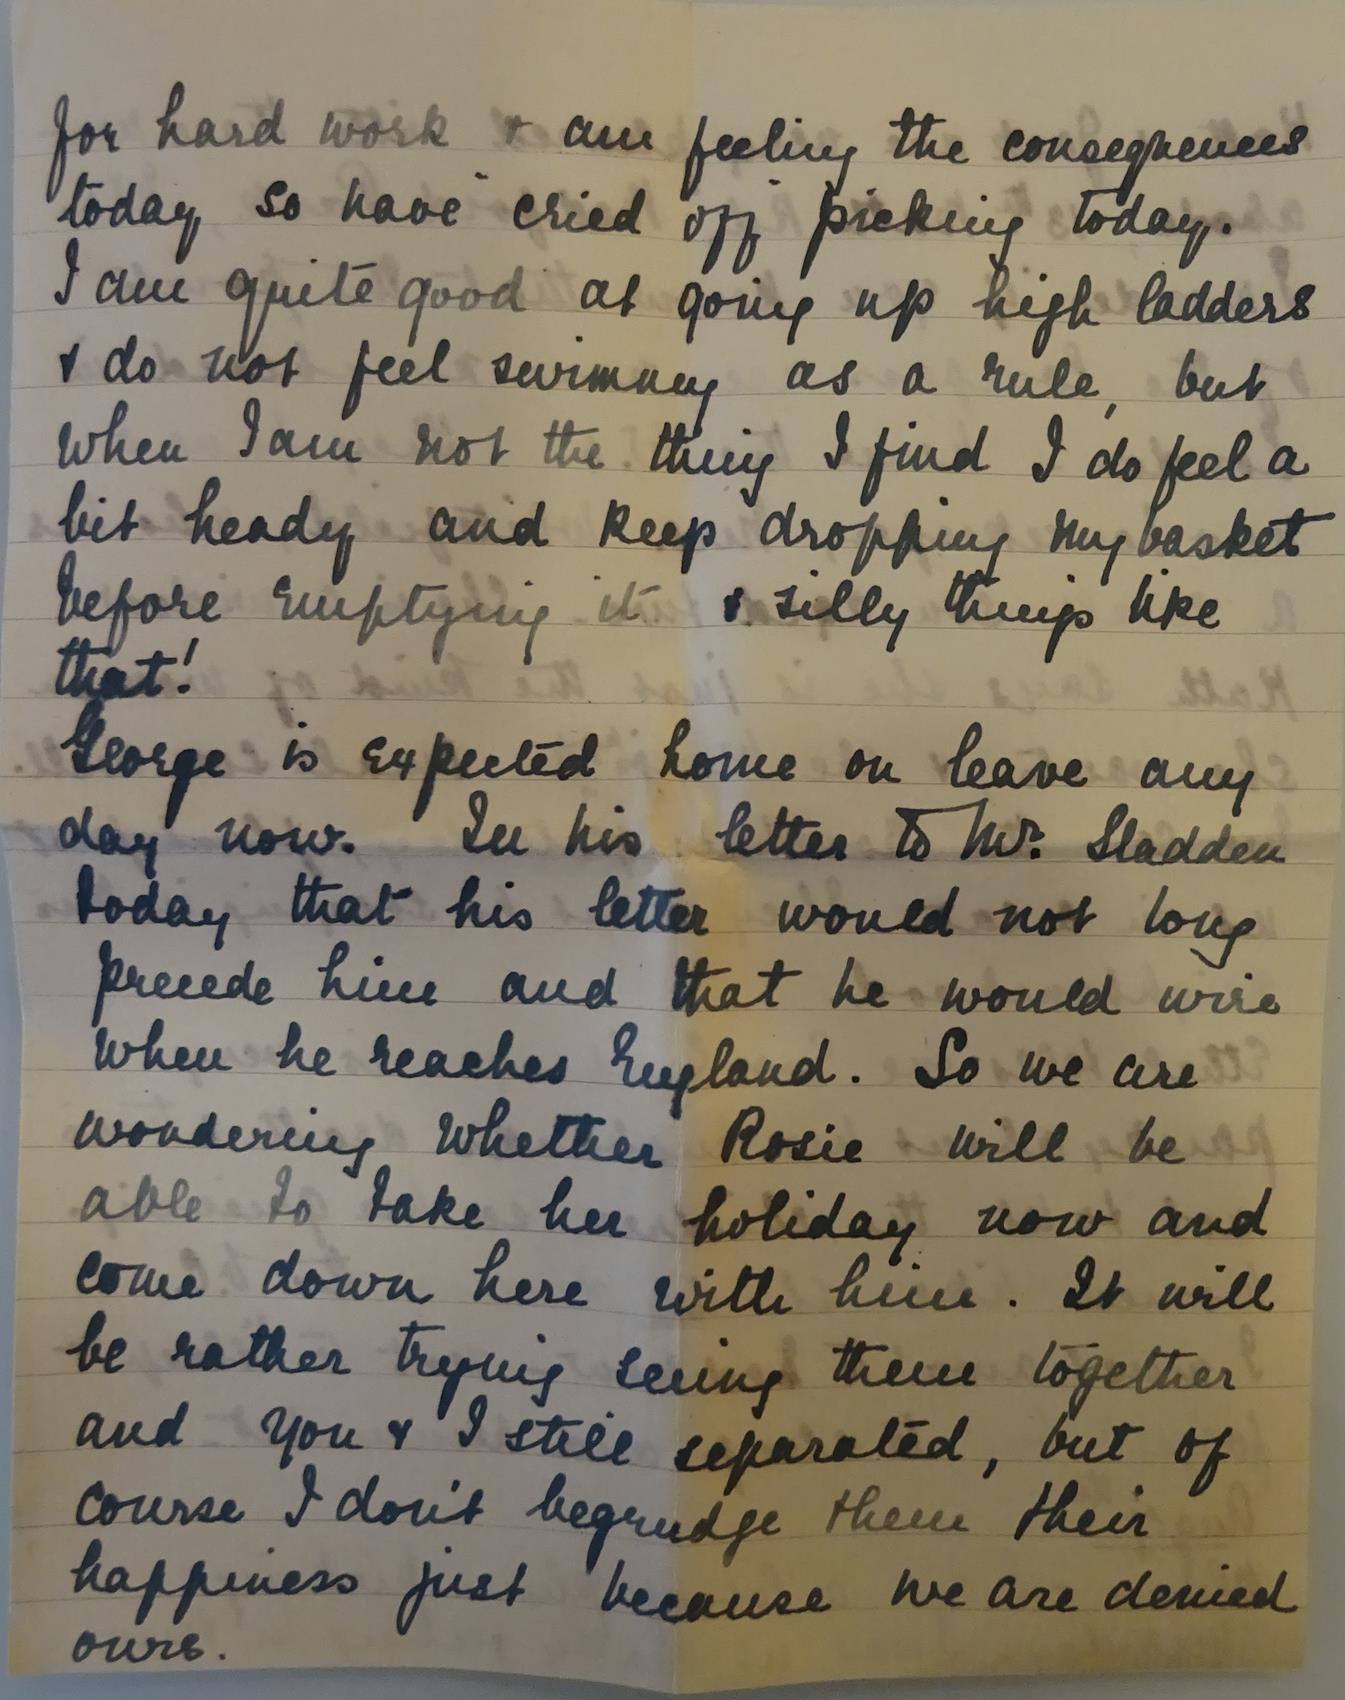 for hard work & am feeling the consequences
today so have cried off picking today.
I am quite good at going up high ladders
& do not feel swimmy as a rule, but
when I am not the thing I find I do feel a
bit heady and keep dropping my basket
before emptying it & silly things like
that!
George is expected home on leave any
day now. In his letter to Mr. Sladden
today that his letter would not long
precede him and that he would wire
when he reaches England. So we are
wondering whether Rosie will be
able to take her holiday now and
come down here with him. It will
be rather trying seeing them together
and you & I still separated, but of
course I don't begrudge them their
happiness just because we are denied
ours.